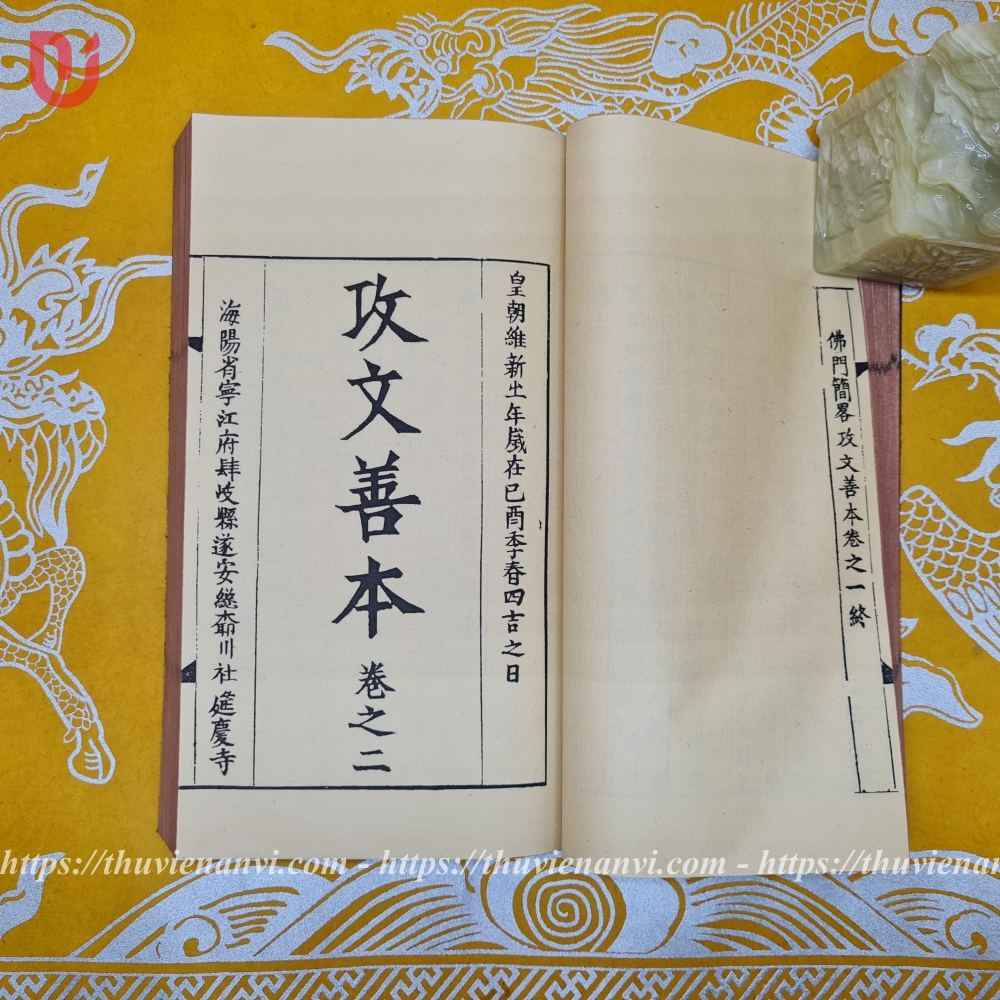 佛門簡畧攻文善本卷之一終
皇朝維新㞢年嵗在已酉季春四吉之日
攻文善本 卷之二
海陽省寧江府肆岐縣遂安総川社 筵慶寺
https://thuvienanvi.com - https://thuvienanvi.com - https://thuviena